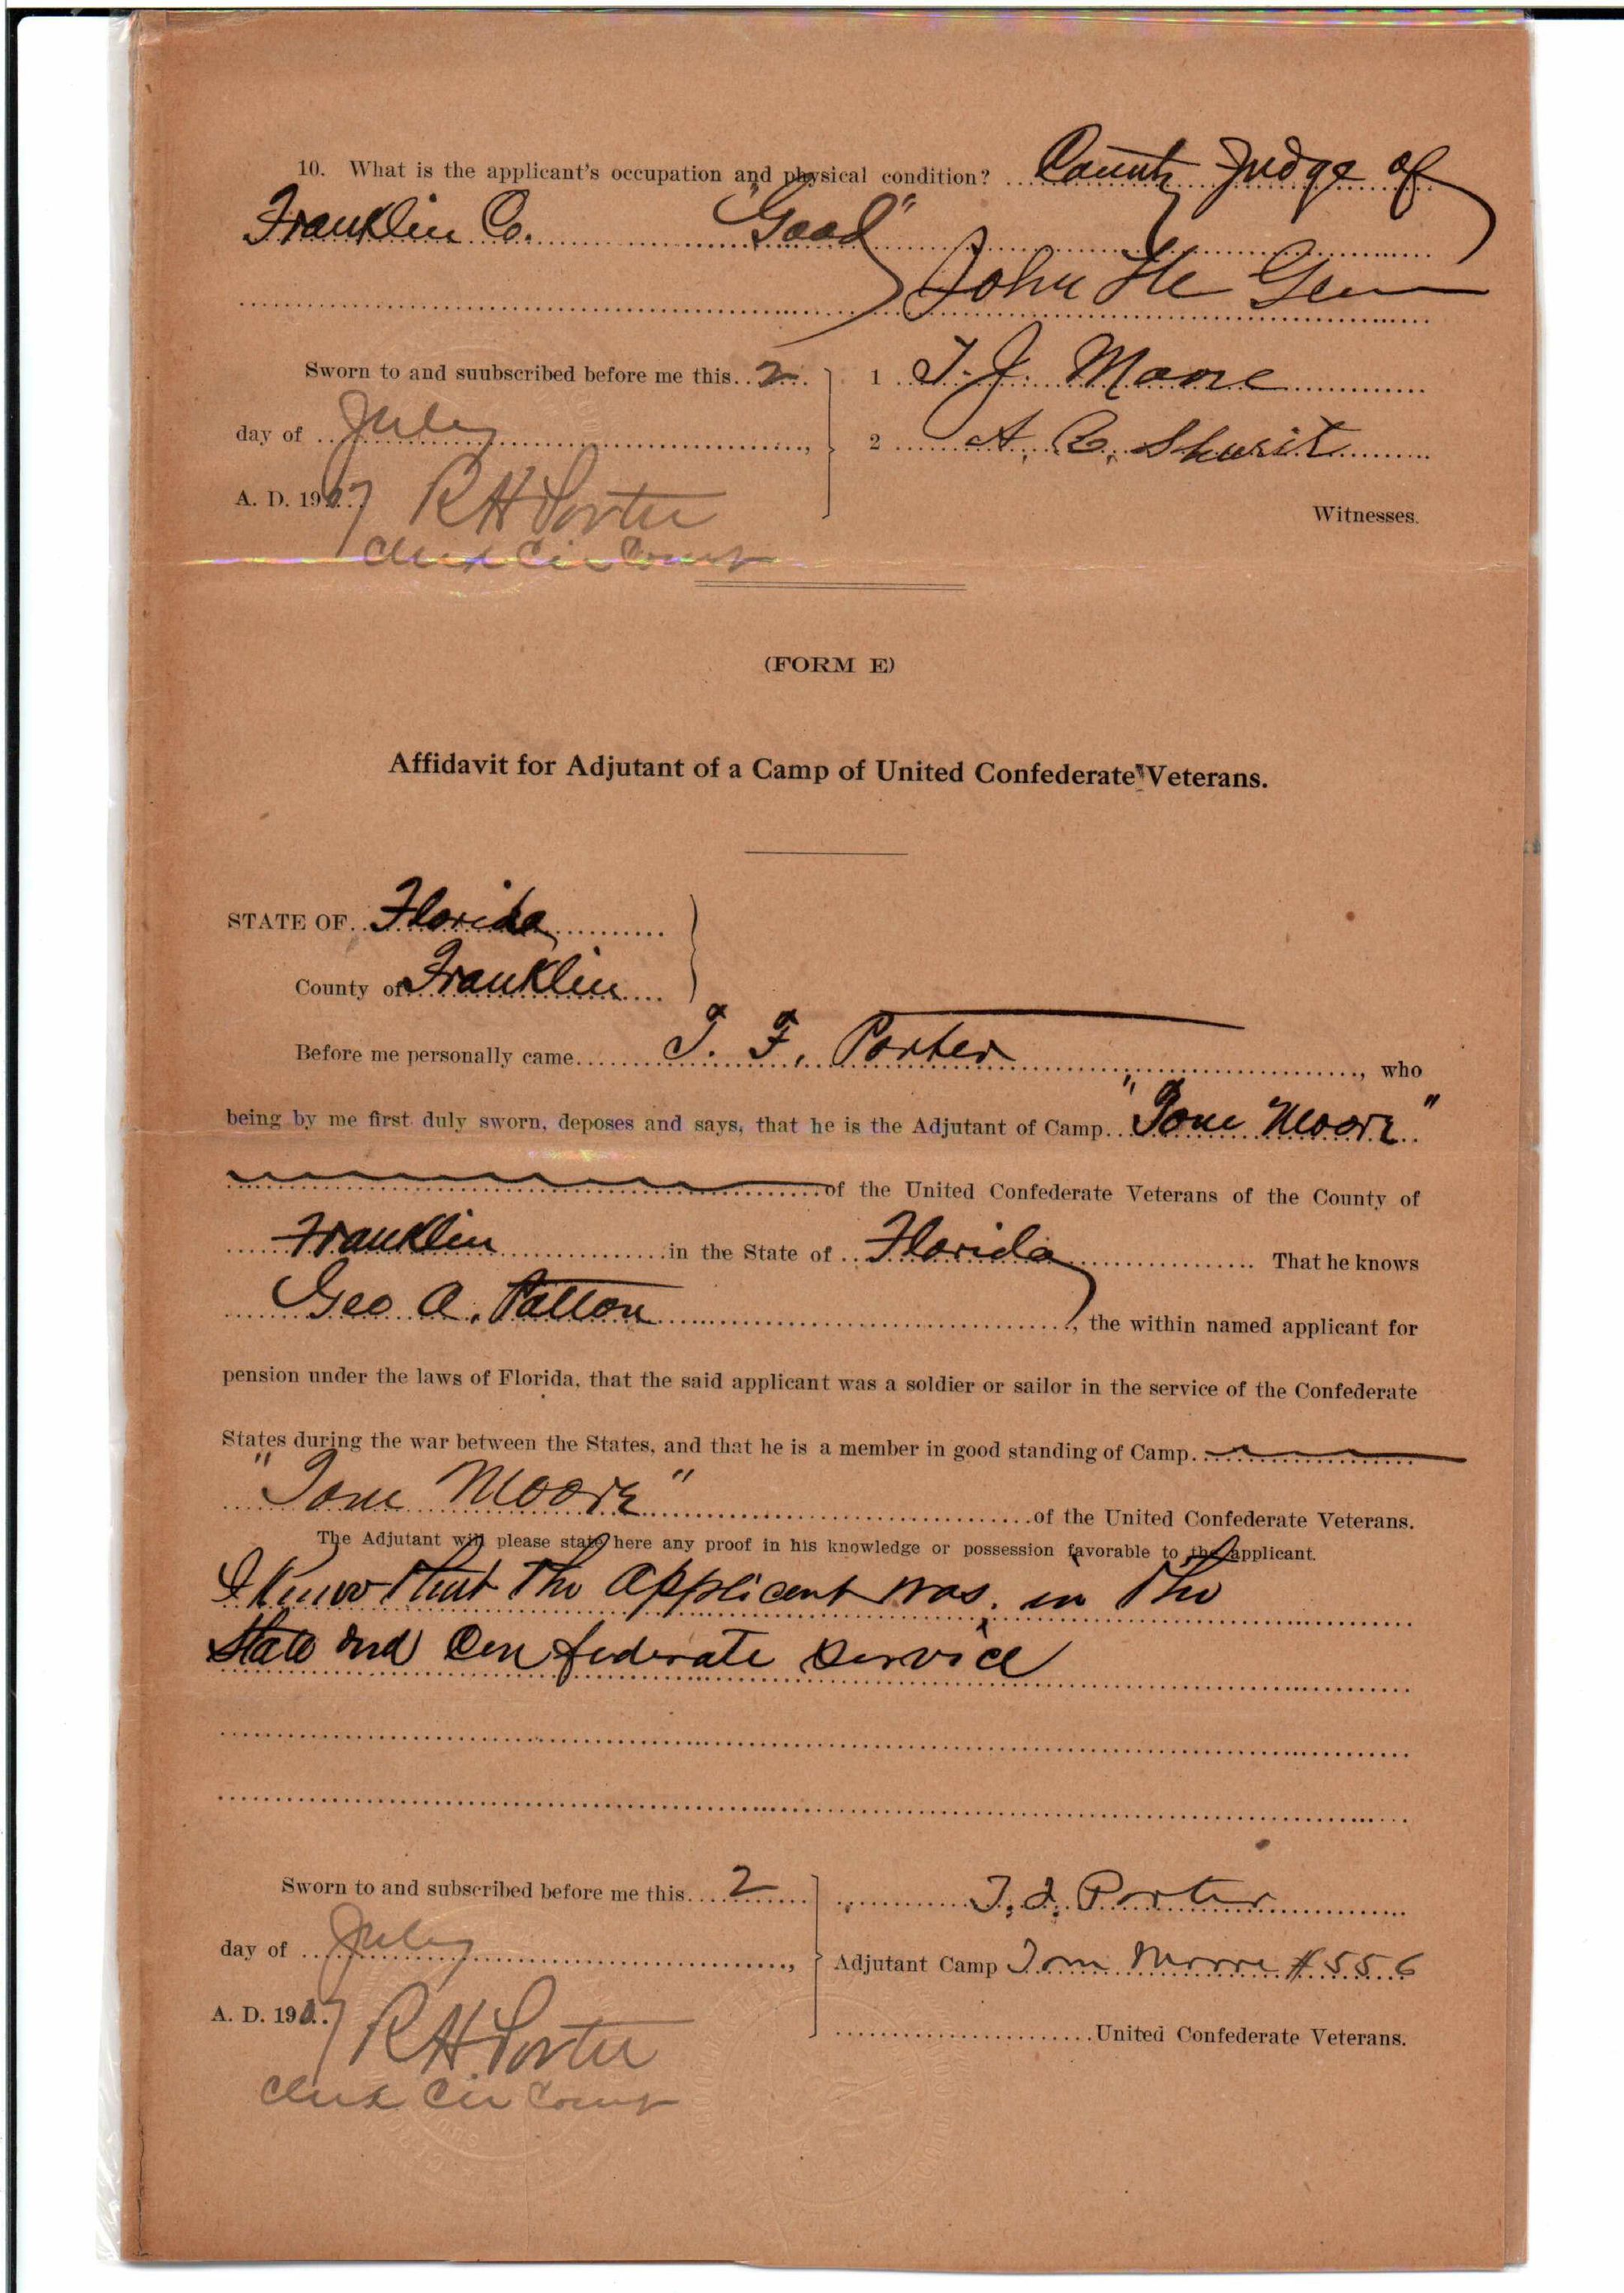 10. What is the applicant's occupation and physical condition? County Judge of
Franklin Co. "Good"
John
Sworn to and suubscribed before me this 2 1 T. J. Moore
day of July, 2 A. C.
A. D. 1907 R H Porter Witnesses.
Clerk Cir Court
(FORM E)
Affidavit for Adjutant of a Camp of United Confederate Veterans.
STATE OF Florida
County of Franklin
Before me personally came T. F. Porter, who
being by me first duly sworn, deposes and says, that he is the Adjutant of Camp "Tom Moore"
of the United Confederate Veterans of the County of
Franklin in the State of Florida That he knows
Geo. A. Patton, the within named applicant for
pension under the laws of Florida, that the said applicant was a soldier or sailor in the service of the Confederate
States during the war between the States, and that he is a member in good standing of Camp.
"Tom Moore" of the United Confederate Veterans.
The Adjutant will please state here any proof in his knowledge or possession favorable to the applicant.
I Know that the applicent was in the
State and Confederate Service
Sworn to and subscribed before me this 2 T. F. Porter
day of July, Adjutant Camp Tom Moore # 556
A. D. 1907 R H Porter United Confederate Veterans.
Clerk Cir Court